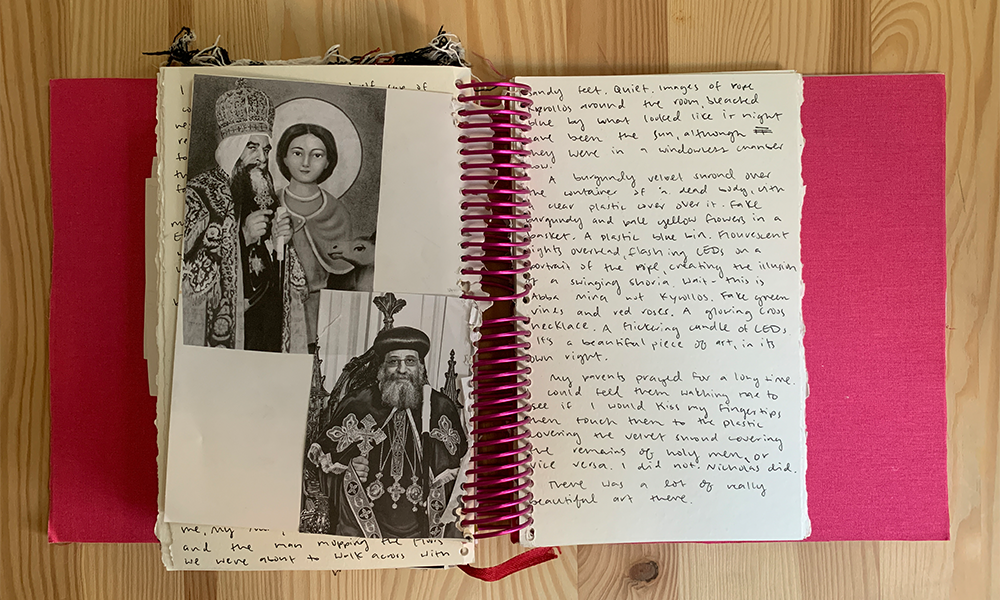 I
me, my
and the man mopping the floors
we were about to walk across with
sandy feet. Quiet. Images of Pope
Kyrollos around the room, bleached
blue by what looked like it might
have been the sun, although
they were in a windowless chamber
now.
A burgundy velvet shroud over
the container of a dead body, with
a clear plastic cover over it. Fake
burgundy and pale yellow flowers in a
basket. A plastic blue bin. Flourescent
lights overhead, flashing LEDs on a
portrait of the Pope, creating the illusion
of a swinging shoria. Wait - this is
Abba Mina not Kyrollos. Fake green
vines and red roses. A glowing cross
necklace. A flickering candle of LEDs
It's a beautiful piece of art, in its
own right.
My parents prayed for a long time.
I could feel them watching me to
see if I would kiss my fingertips
then touch them to the plastic
covering the velvet shroud covering
the remains of holy men, or
vice versa. I did not. Nicholas did.
There was a lot of really
beautiful art there.